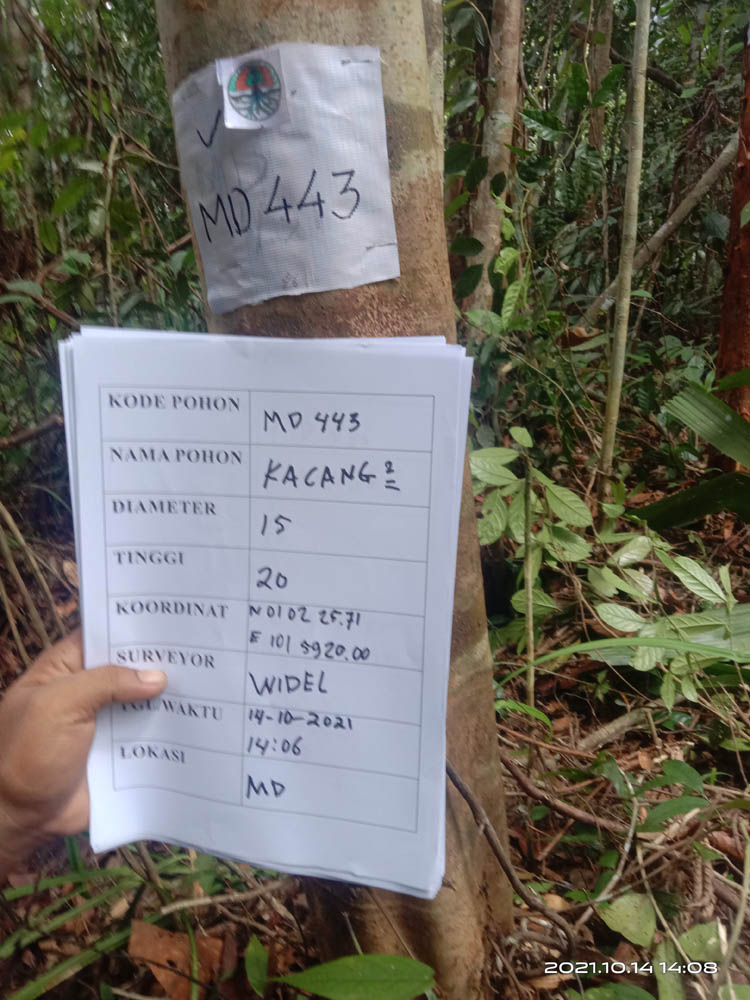 ✓
MD 443
KODE POHON MD 443
NAMA POHON KACANG 2 =
DIAMETER 15
TINGGI 20
KOORDINAT N 01 02 25.71
E 101 5920.00
SURVEYOR WIDEL
TGL/WAKTU 14-10-2021
14:06
LOKASI MD
2021.10.14 14:08